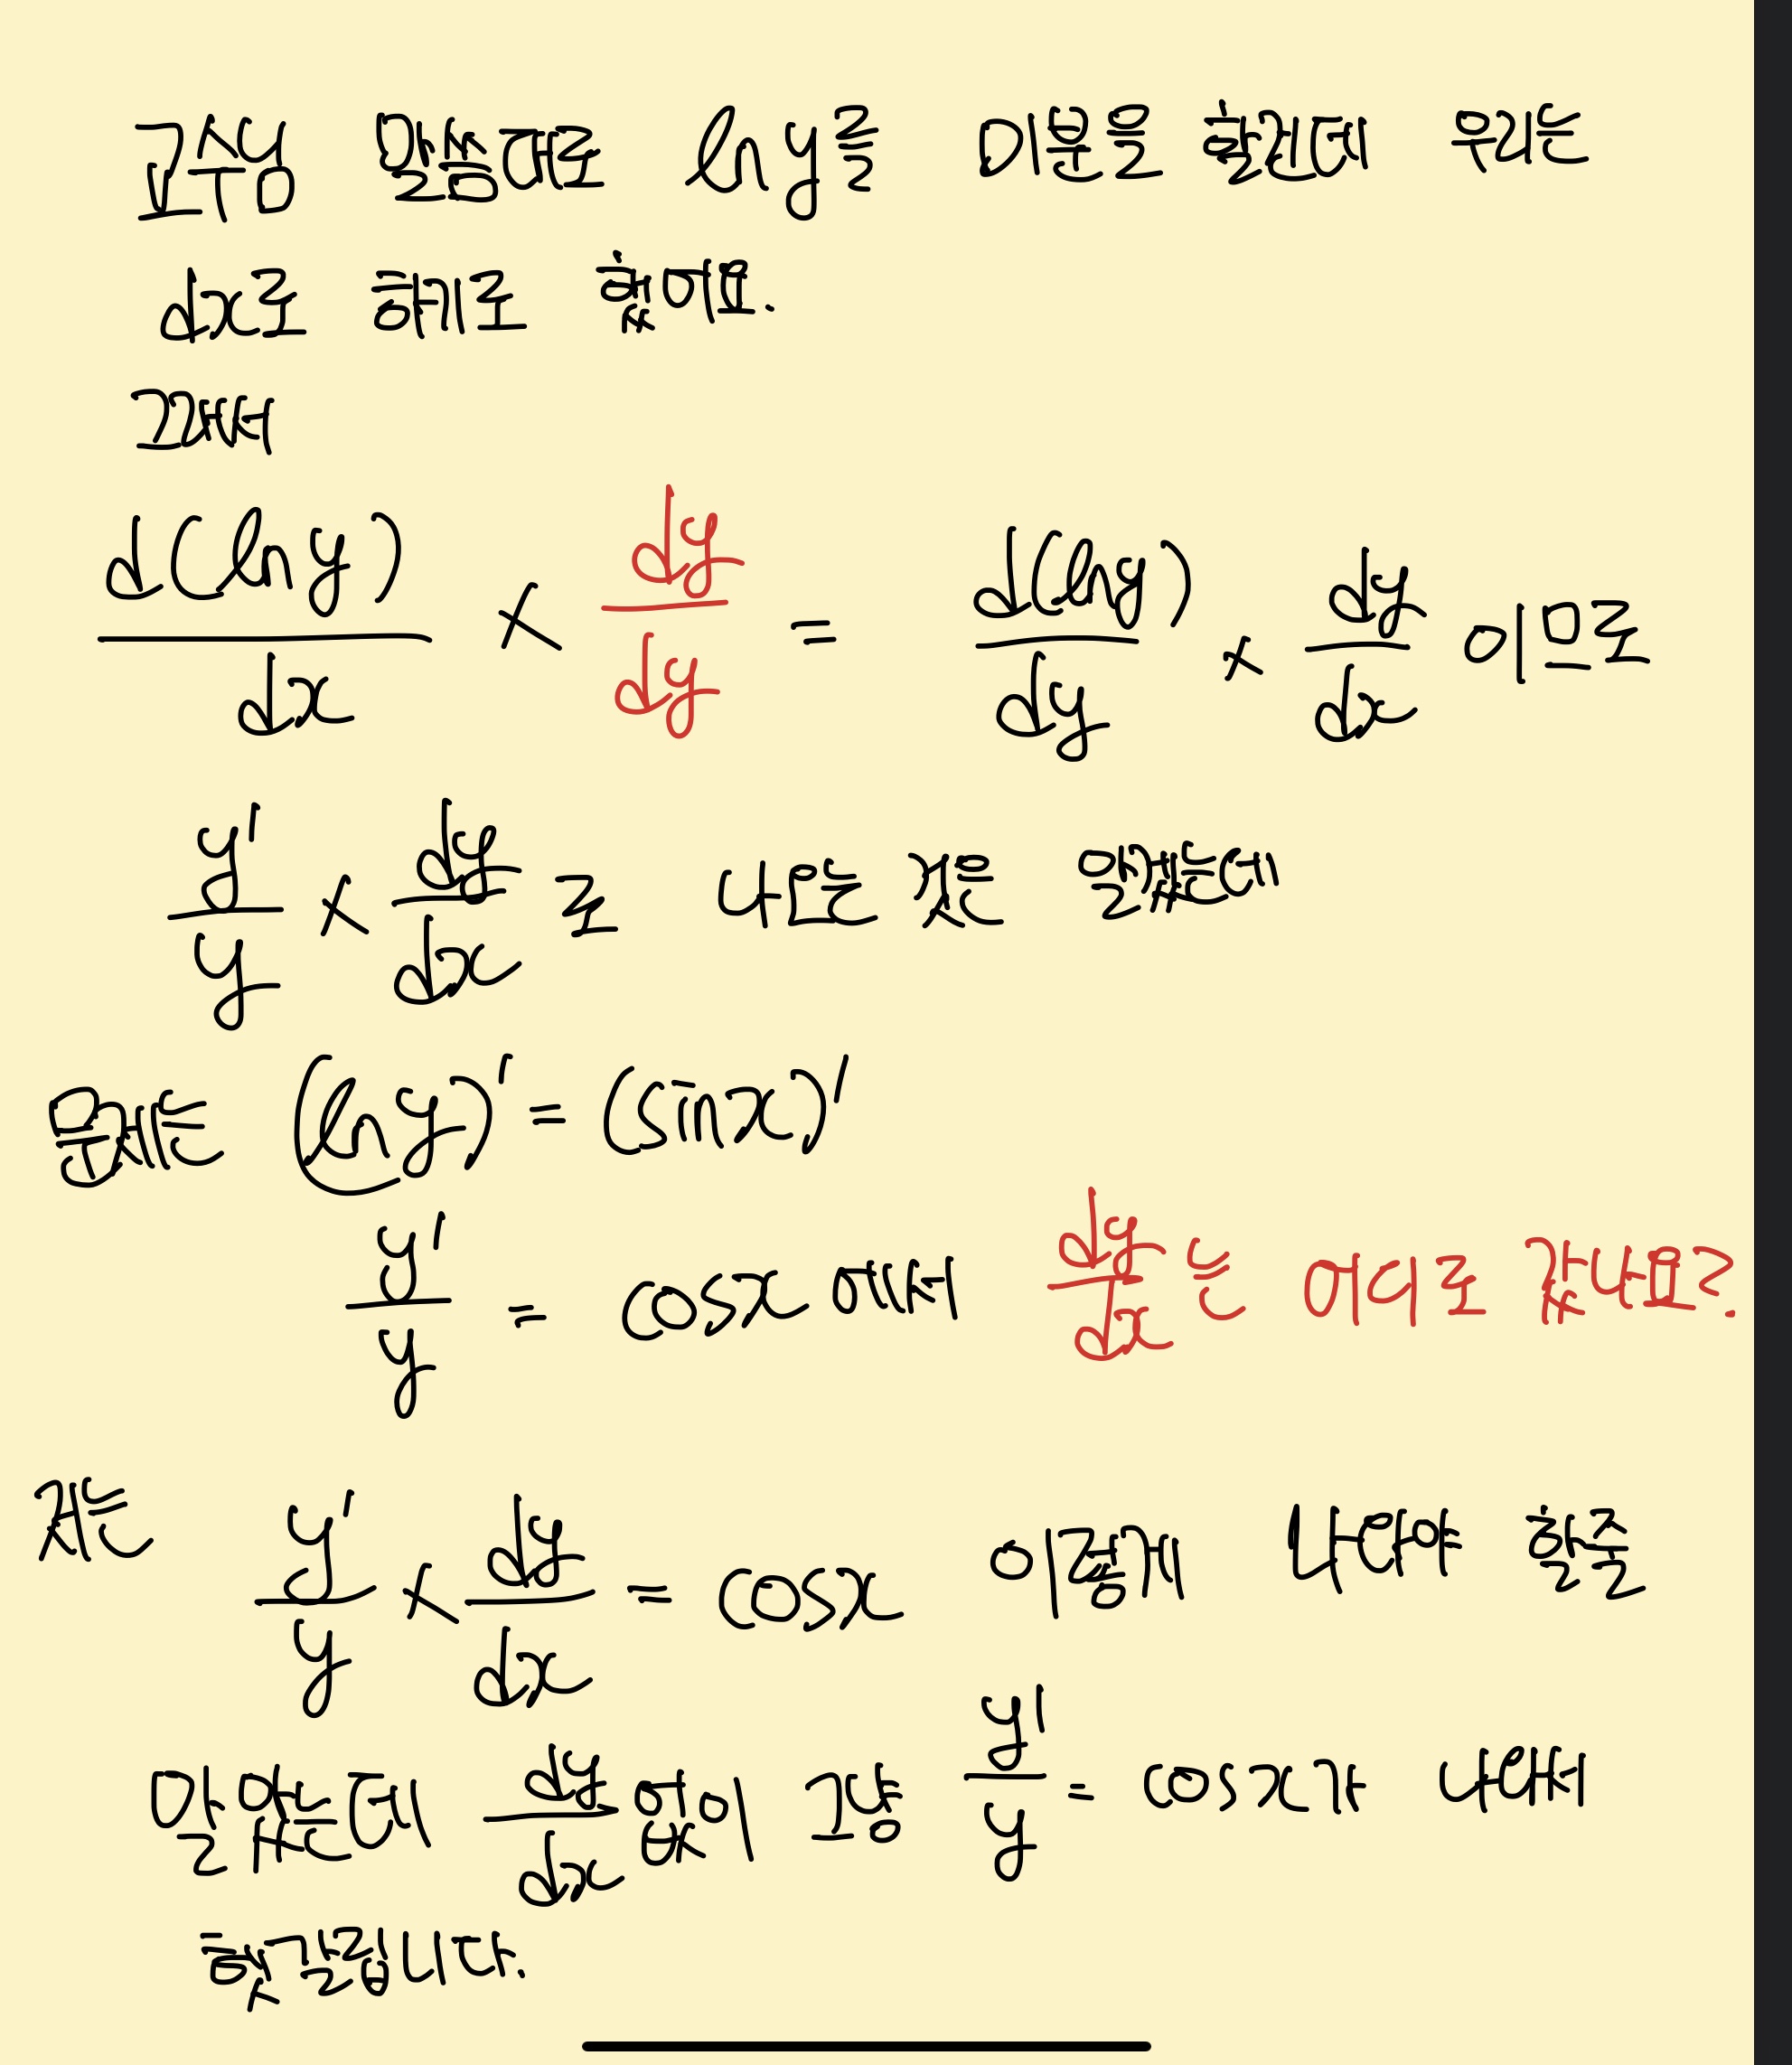 교수님 말씀대로 ln y를 미분을 취하여 우리는
dx로 하기로 했어영.
그래서
d(ln y)/dx × dy/dy = d(ln y)/dy × dy/dx 이므로
y'/y × dy/dx 로 나오는 것은 알겠는데
문제는 (ln y)' = (sin x)'
y'/y = cos x 에서 dy/dx는 어디로 갔나요?
저는 y'/y × dy/dx = cos x 이렇게 나와야 할줄
알았는데 dy/dx 없이 그냥 y'/y = cos x가 나왔네
헷갈립니다.